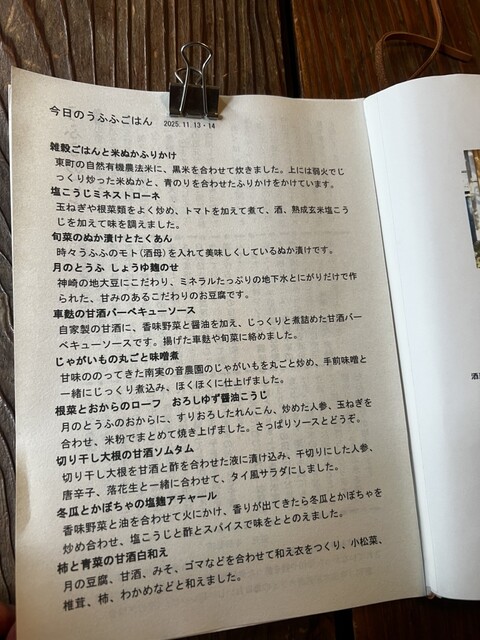 今日のうふふごはん 2025.11.13・14
雑穀ごはんと米ぬかふりかけ
東町の自然有機農法米に、黒米を合わせて炊きました。上には弱火でじ
っくり炒った米ぬかと、青のりを合わせたふりかけをかけています。
塩こうじミネストローネ
玉ねぎや根菜類をよく炒め、トマトを加えて煮て、酒、熟成玄米塩こう
じを加えて味を調えました。
旬菜のぬか漬けとたくあん
時々うふふのモト(酒母)を入れて美味しくしているぬか漬けです。
月のとうふ しょうゆ麹のせ
神崎の地大豆にこだわり、ミネラルたっぷりの地下水とにがりだけで作
られた、甘みのあるこだわりのお豆腐です。
車麩の甘酒バーベキューソース
自家製の甘酒に、香味野菜と醤油を加え、じっくりと煮詰めた甘酒バー
ベキューソースです。揚げた車麩や旬菜に絡めました。
じゃがいもの丸ごと味噌煮
甘味ののってきた南実の音農園のじゃがいもを丸ごと炒め、手前味噌と
一緒にじっくり煮込み、ほくほくに仕上げました。
根菜とおからのローフ おろしゆず醤油こうじ
月のとうふのおからに、すりおろしたれんこん、炒めた人参、玉ねぎを
合わせ、米粉でまとめて焼き上げました。さっぱりソースとどうぞ。
切り干し大根の甘酒ソムタム
切り干し大根を甘酒と酢を合わせた液に漬け込み、千切りにした人参、
唐辛子、落花生と一緒に合わせて、タイ風サラダにしました。
冬瓜とかぼちゃの塩麹アチャール
香味野菜と油を合わせて火にかけ、香りが出てきたら冬瓜とかぼちゃを
炒め合わせ、塩こうじと酢とスパイスで味をととのえました。
柿と青菜の甘酒白和え
月の豆腐、甘酒、みそ、ゴマなどを合わせて和え衣をつくり、小松菜、
椎茸、柿、わかめなどと和えました。
酒